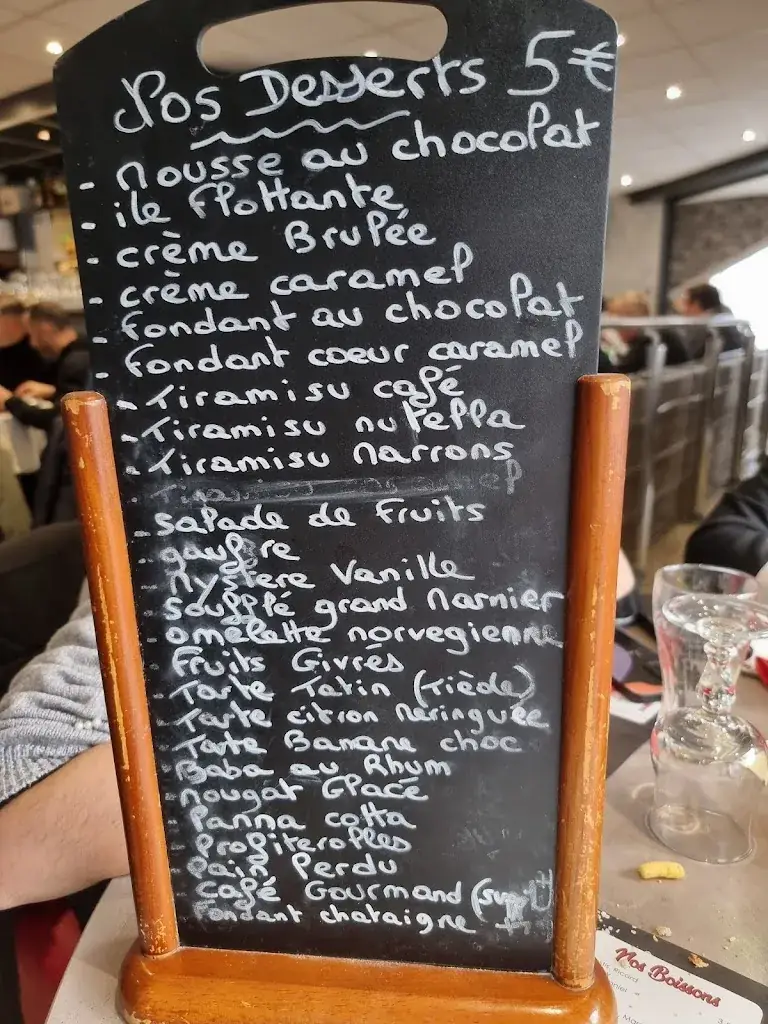 Nos Desserts 5€
- Mousse au chocolat
- ile flottante
- crème Brulée
- crème caramel
- fondant au chocolat
- fondant coeur caramel
- Tiramisu café
- Tiramisu nutella
- Tiramisu Marrons
- salade de fruits
- gaufre
- Mystere Vanille
- soufflé grand Marnier
- omelette norvegienne
- fruits Givrés
- Tarte Tatin (Tiède)
- Tarte citron Meringuée
- Tarte Banane choc
- Baba au Rhum
- nougat Glacé
- Panna cotta
- Profiteroles
- Pain Perdu
- café Gourmand
- Fondant chataigne
Nos Boissons